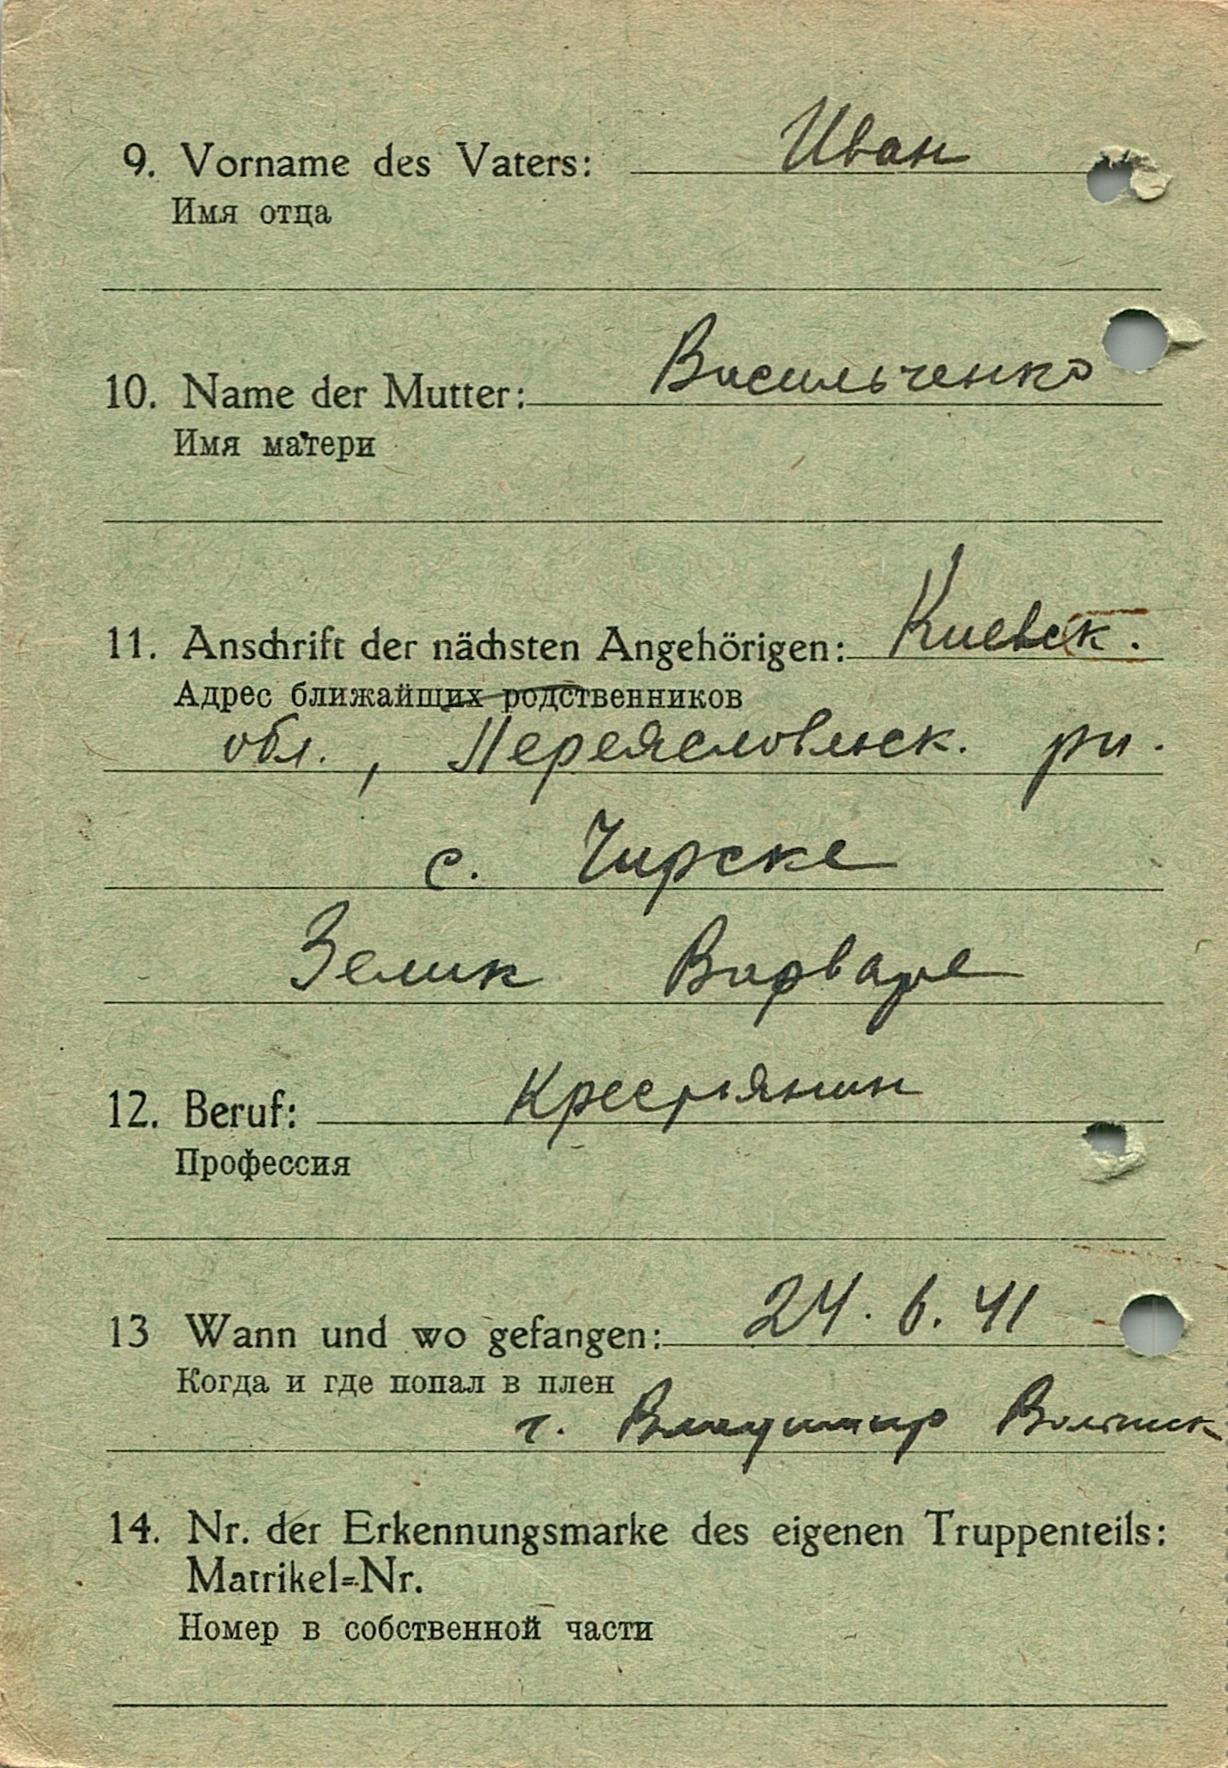 9. Vorname des Vaters: Иван
Имя отца
10. Name der Mutter: Васильченко
Имя матери
11. Anschrift der nächsten Angehörigen: Киевск.
Адрес ближайщих родственников
обл., Переясловльск. рн.
с. Чирске
Зелик Варваре
12. Beruf: Крестьянин
Профессия
13 Wann und wo gefangen: 24.6.41
Когда и где попал в плен
г. Владимир Волынск
14. Nr. der Erkennungsmarke des eigenen Truppenteils:
Matrikel=Nr.
Номер в собственной части